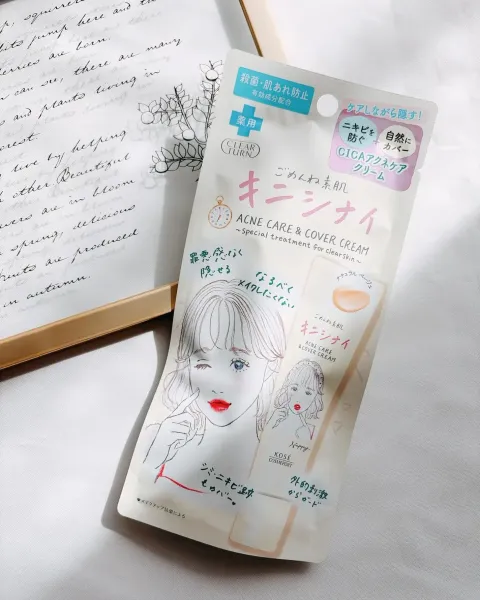 squirrels
jump here and the
are born.
can see, there are many
and plants living in
forest.
live by helping
other. Beautiful
flowers are in bloom
spring, delicious
fruits are produced
in autumn.
殺菌・肌あれ防止
有効成分配合
薬用
CLEAR
TURN
ケアしながら隠す!
ニキビを
防ぐ
自然に
カバー
CICAアクネケア
クリーム
ごめんね素肌
キニシナイ
ACNE CARE & COVER CREAM
~special treatment for clear skin~
罪悪感なく
隠せる
なるべく
メイクしたくない
ナチュラルベージュ
ごめんね素肌
キニシナイ
ACNE CARE
& COVER CREAM
KOSÉ
COSMEPORT
シミ・ニキビ跡
もカバー
外的刺激
からガード
※メイクアップ効果による